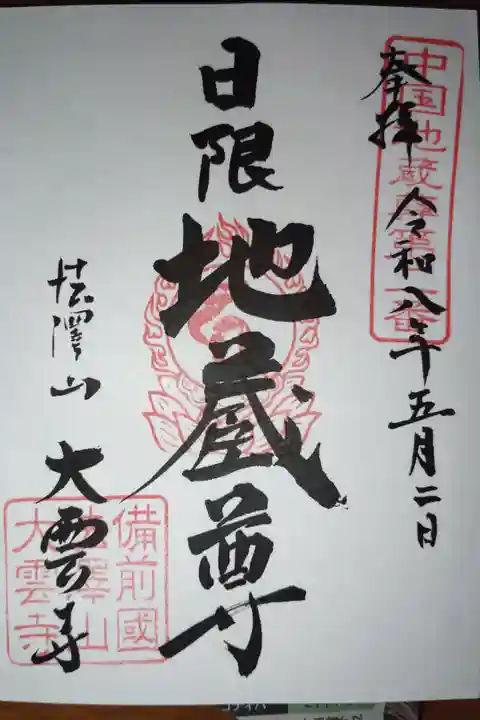 奉拝 令和八年五月二日
中国地蔵尊第一番
日限
地蔵尊
法澤山 大雲寺
備前國
法澤山
大雲寺